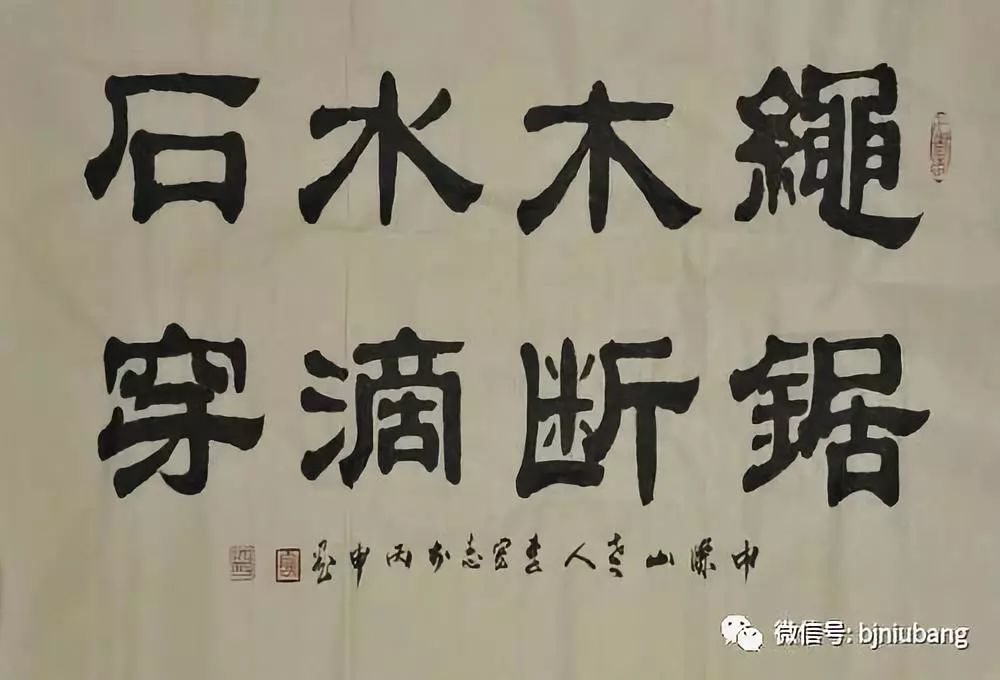 繩鋸
木断
水滴
石穿
中條山老人李宏志於丙申
微信号: bjniubang